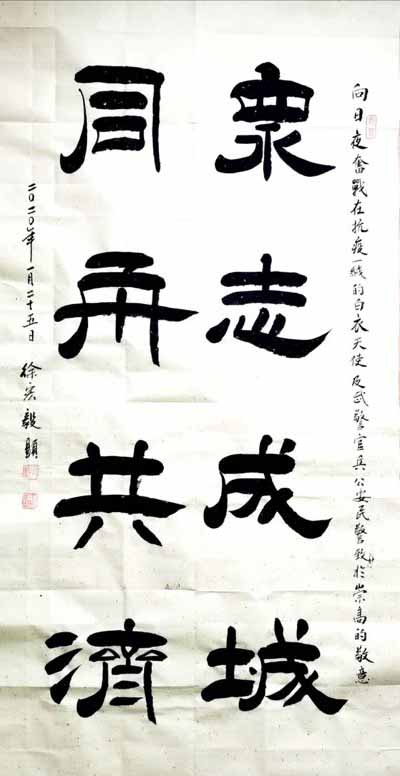 向日夜奮戰在抗疫一綫的白衣天使及武警官兵公安民警致於崇高的敬意
衆志成城
同舟共濟
二〇二〇年一月二十五日 徐宏毅題